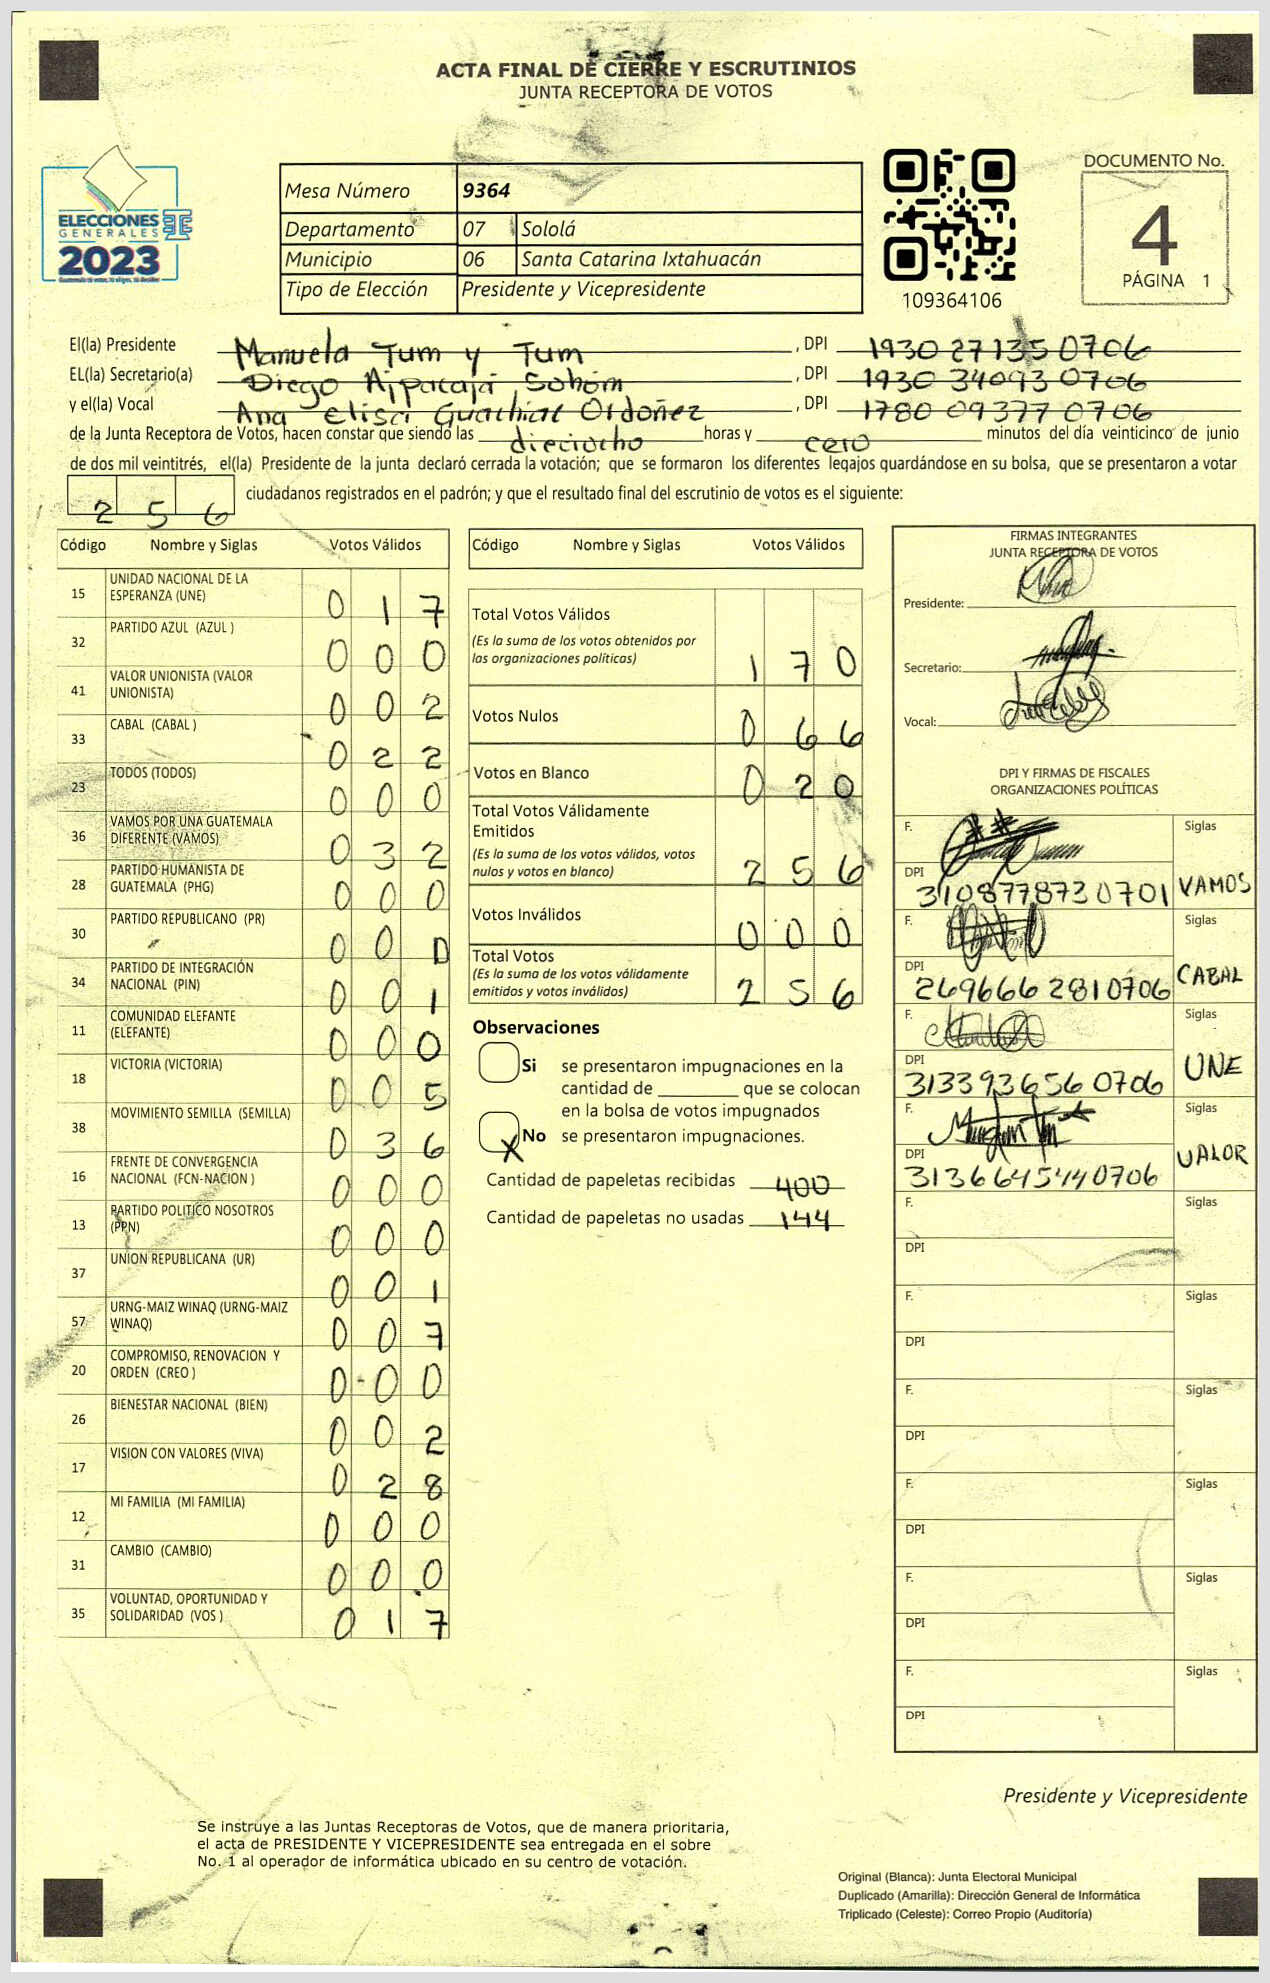 ACTA FINAL DE CIERRE Y ESCRUTINIOS
JUNTA RECEPTORA DE VOTOS
ELECCIONES
GENERALES
2023
Mesa Número 9364
Departamento 07 Sololá
Municipio 06 Santa Catarina Ixtahuacán
Tipo de Elección Presidente y Vicepresidente
109364106
DOCUMENTO No.
4
PÁGINA 1
El(la) Presidente Manuela Tum y Tum , DPI 1930 27135 0706
EL(la) Secretario(a) Diego Ajpacajá Sohom , DPI 1930 34093 0706
y el(la) Vocal Ana Elisa Guachiac Ordoñez , DPI 1780 09377 0706
de la Junta Receptora de Votos, hacen constar que siendo las dieciocho horas y cero minutos del día veinticinco de junio
de dos mil veintitrés, el(la) Presidente de la junta declaró cerrada la votación; que se formaron los diferentes legajos guardándose en su bolsa, que se presentaron a votar
2 5 6 ciudadanos registrados en el padrón; y que el resultado final del escrutinio de votos es el siguiente:
Código Nombre y Siglas Votos Válidos
15 UNIDAD NACIONAL DE LA
ESPERANZA (UNE) 0 1 7
32 PARTIDO AZUL (AZUL ) 0 0 0
41 VALOR UNIONISTA (VALOR
UNIONISTA) 0 0 2
33 CABAL (CABAL ) 0 2 2
23 TODOS (TODOS) 0 0 0
36 VAMOS POR UNA GUATEMALA
DIFERENTE (VAMOS) 0 3 2
28 PARTIDO HUMANISTA DE
GUATEMALA (PHG) 0 0 0
30 PARTIDO REPUBLICANO (PR) 0 0 0
34 PARTIDO DE INTEGRACIÓN
NACIONAL (PIN) 0 0 1
11 COMUNIDAD ELEFANTE
(ELEFANTE) 0 0 0
18 VICTORIA (VICTORIA) 0 0 5
38 MOVIMIENTO SEMILLA (SEMILLA) 0 3 6
16 FRENTE DE CONVERGENCIA
NACIONAL (FCN-NACION ) 0 0 0
13 PARTIDO POLITICO NOSOTROS
(PPN) 0 0 0
37 UNION REPUBLICANA (UR) 0 0 1
57 URNG-MAIZ WINAQ (URNG-MAIZ
WINAQ) 0 0 7
20 COMPROMISO, RENOVACION Y
ORDEN (CREO ) 0 0 0
26 BIENESTAR NACIONAL (BIEN) 0 0 2
17 VISION CON VALORES (VIVA) 0 2 8
12 MI FAMILIA (MI FAMILIA) 0 0 0
31 CAMBIO (CAMBIO) 0 0 0
35 VOLUNTAD, OPORTUNIDAD Y
SOLIDARIDAD (VOS ) 0 1 7
Código Nombre y Siglas Votos Válidos
Total Votos Válidos
(Es la suma de los votos obtenidos por
las organizaciones políticas) 1 7 0
Votos Nulos 0 6 6
Votos en Blanco 0 2 0
Total Votos Válidamente
Emitidos
(Es la suma de los votos válidos, votos
nulos y votos en blanco) 2 5 6
Votos Inválidos 0 0 0
Total Votos
(Es la suma de los votos válidamente
emitidos y votos inválidos) 2 5 6
Observaciones
Si se presentaron impugnaciones en la
cantidad de ________ que se colocan
en la bolsa de votos impugnados
X No se presentaron impugnaciones.
Cantidad de papeletas recibidas 400
Cantidad de papeletas no usadas 144
FIRMAS INTEGRANTES
JUNTA RECEPTORA DE VOTOS
Presidente:
Secretario:
Vocal:
DPI Y FIRMAS DE FISCALES
ORGANIZACIONES POLÍTICAS
F. Siglas
DPI 3108778730701 VAMOS
F. Siglas
DPI 269666 2810706 CABAL
F. Siglas
DPI 313393656 0706 UNE
F. Siglas
DPI 3136645440706 VALOR
F. Siglas
DPI
F. Siglas
DPI
F. Siglas
DPI
F. Siglas
DPI
F. Siglas
DPI
F. Siglas
DPI
Presidente y Vicepresidente
Se instruye a las Juntas Receptoras de Votos, que de manera prioritaria,
el acta de PRESIDENTE Y VICEPRESIDENTE sea entregada en el sobre
No. 1 al operador de informática ubicado en su centro de votación.
Original (Blanca): Junta Electoral Municipal
Duplicado (Amarilla): Dirección General de Informática
Triplicado (Celeste): Correo Propio (Auditoría)